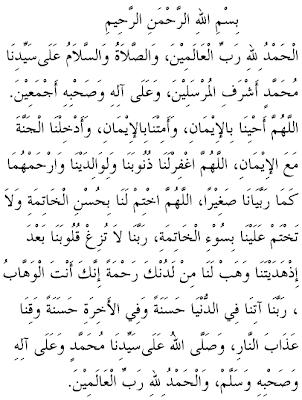 بِسْمِ اللهِ الرَّحْمَنِ الرَّحِيمِ
الْحَمْدُ لِلهِ رَبِّ الْعَالَمِيْنَ، وَالصَّلَاةُ وَالسَّلَامُ عَلَى سَيِّدِنَا
مُحَمَّدٍ أَشْرَفِ الْمُرْسَلِيْنَ، وَعَلَى آلِهِ وَصَحْبِهِ أَجْمَعِيْنَ.
اللَّهُمَّ أَحْيِنَا بِالْإِيْمَانِ، وَأَمِتْنَابِالْإِيْمَانِ، وَأَدْخِلْنَا الْجَنَّةَ
مَعَ الْإِيْمَانِ، اللَّهُمَّ اغْفِرْلَنَا ذُنُوبَنَا وَلِوَالِدَيْنَا وَارْحَمْهُمَا
كَمَا رَبَّيَانَا صَغِيْرًا، اللَّهُمَّ اخْتِمْ لَنَا بِحُسْنِ الْخَاتِمةِ وَلَا
تَخْتِمْ عَلَيْنَا بِسُوْءِ الْخَاتِمَةِ، رَبَّنَا لَا تُزِغْ قُلُوبَنَا بَعْدَ
إِذْهَدَيْتَنَا وَهَبْ لَنَا مِنْ لَدُنْكَ رَحْمَةً إِنَّكَ أَنْتَ الْوَهَّابُ
، رَبَّنَا آتِنَا فِي الدُّنْيَا حَسَنَةً وَفِي الْأَخِرَةِ حَسَنَةً وَقِنَا
عَذَابَ النَّارِ، وَصَلَّى اللهُ عَلَى سَيِّدِنَا مُحَمَّدٍ وَعَلَى آلِهِ
وَصَحْبِهِ وَسَلَّمْ، وَالْحَمْدُ لِلهِ رَبِّ الْعَالَمِيْنَ.